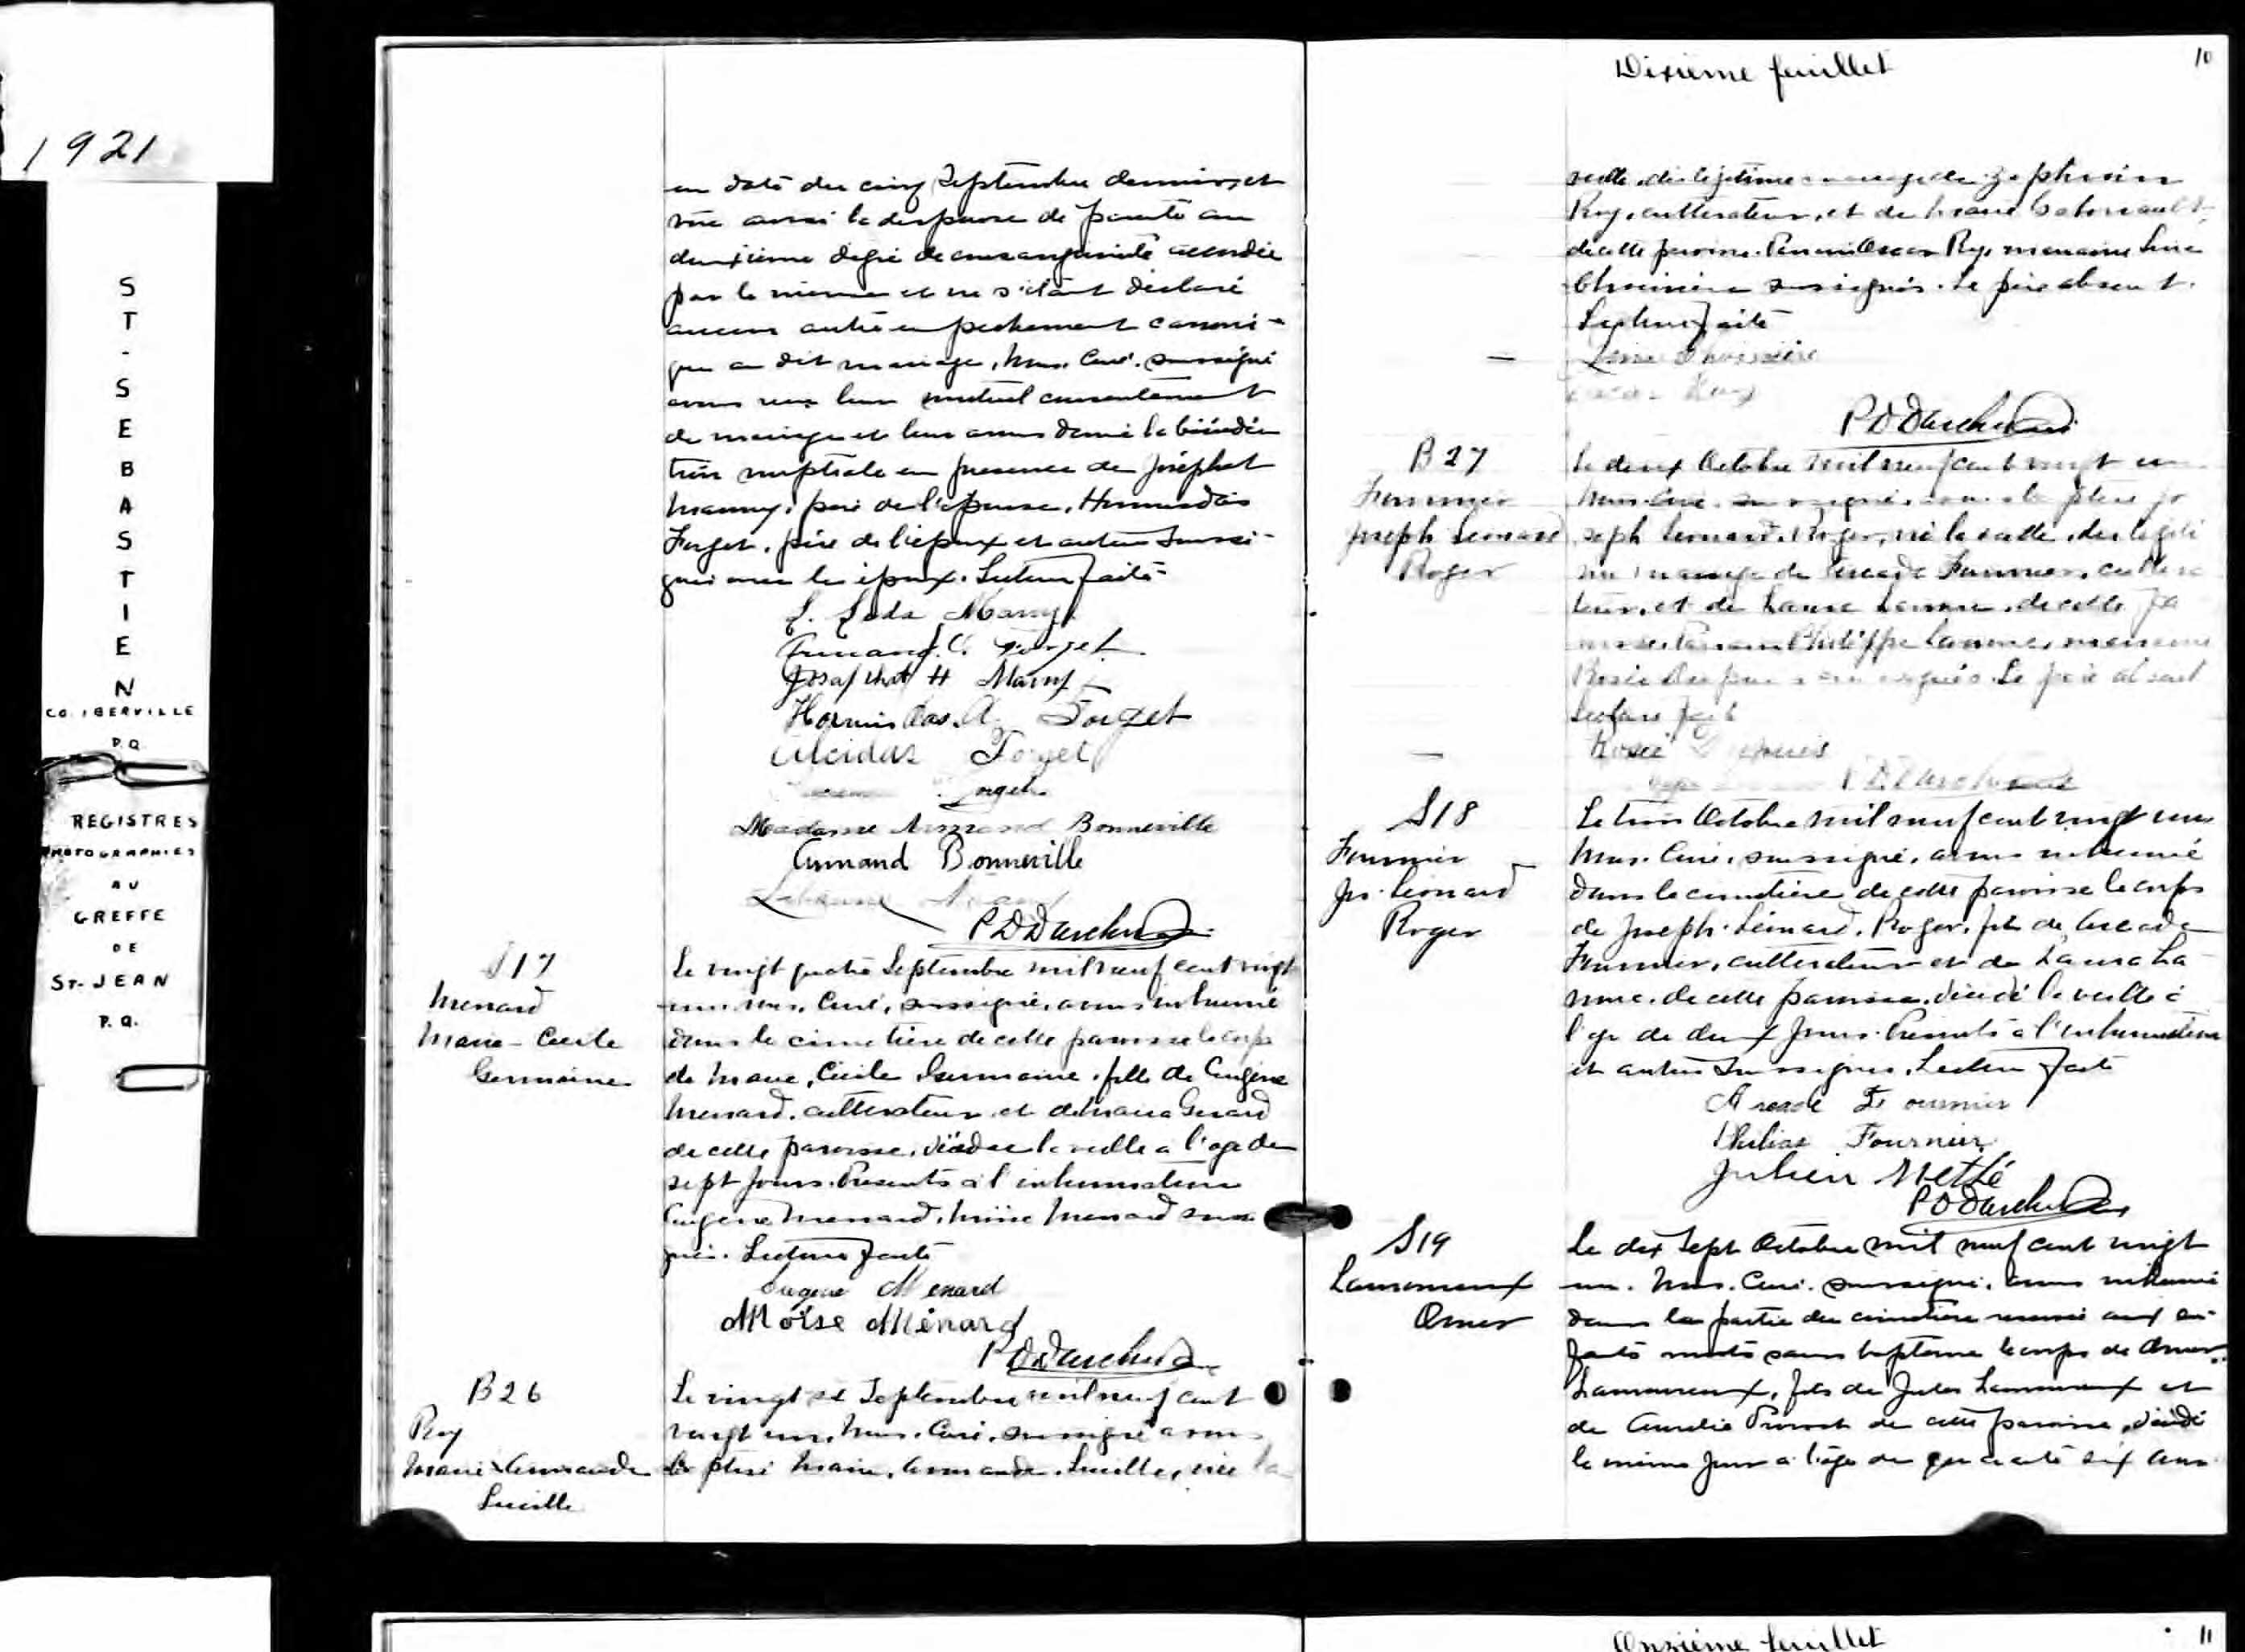 1921
ST-SEBASTIEN
CO. IBERVILLE
P.Q.
REGISTRES
PHOTOGRAPHIES
AU
GREFFE
DE
ST-JEAN
P.Q.
en date du cinq Septembre dernier, et
vue aussi la dispense de parenté au
deuxième degré de consanguinité accordée
par le même et ne s'étant déclaré
aucun autre empêchement canoni-
que au dit mariage, Nous, Curé, soussigné
avons reçu leur mutuel consentement
de mariage et leur avons donné la bénédic
tion nuptiale en présence de Joséphat
Manny, père de l'épouse, Hormisdas
Forget, père de l'époux et autres soussi-
gnés avec les époux. Lecture faite
L. Leda Manny
Armand. Forget
Josaphat H Manny
Hormisdas. A. Forget
Alcidas Forget
Forget
Madame Armand Bonneville
Armand Bonneville
P D Darche
S17
Menard
Marie-Cecile
Germaine
Le vingt quatre Septembre mil neuf cent vingt
un, nous, Curé, soussigné, avons inhumé
dans le cimetière de cette paroisse le corps
de Marie, Cécile Germaine, fille de Eugène
Menard, cultivateur et de Maria Girard
de cette paroisse, décédée la veille à l'age de
sept jours. Présents à l'inhumation
Eugène Menard, Moïse Menard soussi
gnés. Lecture faite
Eugene Menard
Moïse Ménard
P D Darche
B26
Roy
Marie Armande
Lucille
Le vingt six Septembre mil neuf cent
vingt un, Nous, Curé, soussigné avons
baptisé Marie, Armande, Lucille, née la
Dixième feuillet
10
veille, du légitime mariage de Zéphirin
Roy, cultivateur, et de Marie
de cette paroisse. Parrain Oscar Roy, marraine Lina
Choinière soussignés. Le père absent.
Lecture faite
Lina Choinière
Oscar Roy
P D Darche
B27
Fournier
Joseph Leonard
Roger
Le deux Octobre mil neuf cent vingt un
Nous, Curé, soussigné, avons baptisé Jo
seph Leonard, Roger, né la veille, du légiti
me mariage de Arcade Fournier, cultiva
teur, et de Laura Lamne, de cette pa
roisse. Parrain Philippe Lamne, marraine
Rosée Dupuis soussignés. Le père absent
Lecture faite
Rosée Dupuis
P D Darche
S18
Fournier
Js. Leonard
Roger
Le trois Octobre mil neuf cent vingt un
Nous, Curé, soussigné, avons inhumé
dans le cimetière de cette paroisse le corps
de Joseph. Léonard, Roger, fils de Arcade
Fournier, cultivateur et de Laura La-
mne, de cette paroisse, décédé la veille à
l'age de deux jours. Présents à l'inhumation
et autres soussignés. Lecture faite
Arcade Fournier
Philias Fournier
Julien Messé
P D Darche
S19
Lamoureux
Omer
Le dix sept Octobre mil neuf cent vingt
un, Nous, Curé, soussigné, avons inhumé
dans la partie du cimetière réservée aux en-
fants morts sans baptême le corps de Omer
Lamoureux, fils de Jules Lamoureux et
de Aurélie Provost de cette paroisse, décédé
le même jour à l'âge de quarante six ans
Onzième feuillet
11